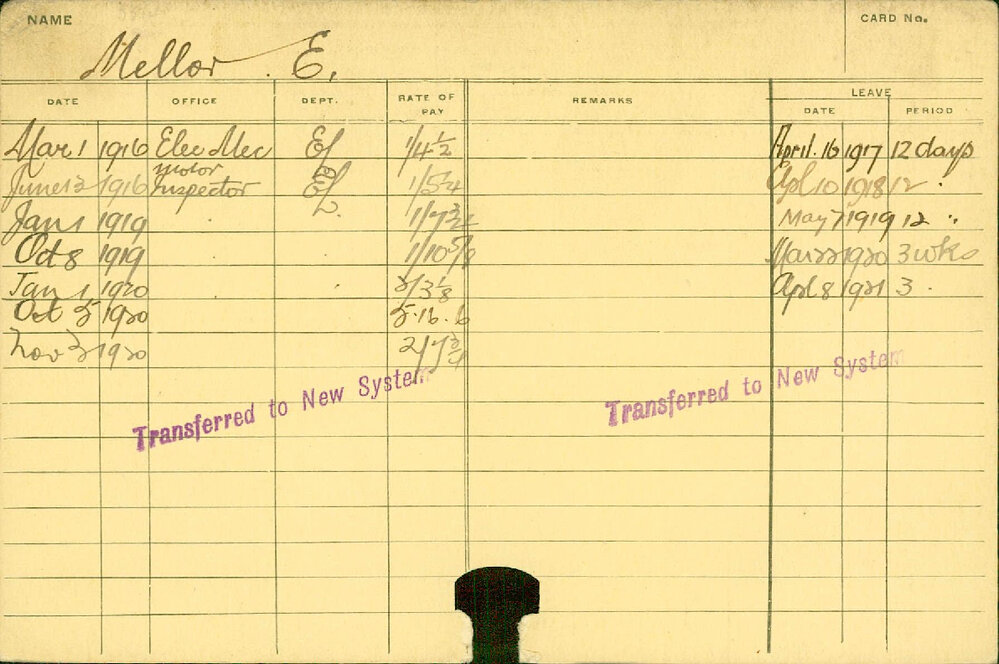 NAME
CARD No.
Mellor E.
LEAVE
DATE OFFICE DEPT. RATE OF PAY REMARKS DATE PERIOD
Mar 1 1916 Elec Mec El 1/4½ April. 16 1917 12 days
June 12 1916 Motor Inspector El 1/5¼ Apl 10 1918 12 "
Jan 1 1919 1/7¾ May 7 1919 12 "
Oct 8 1919 1/10⅝ Mar 22 1920 3 wks
Jan 1 1920 2/3⅛ Apl 8 1921 3 "
Oct 5 1920 5.16.6
Nov 3 1920 2/7¾
Transferred to New System
Transferred to New System